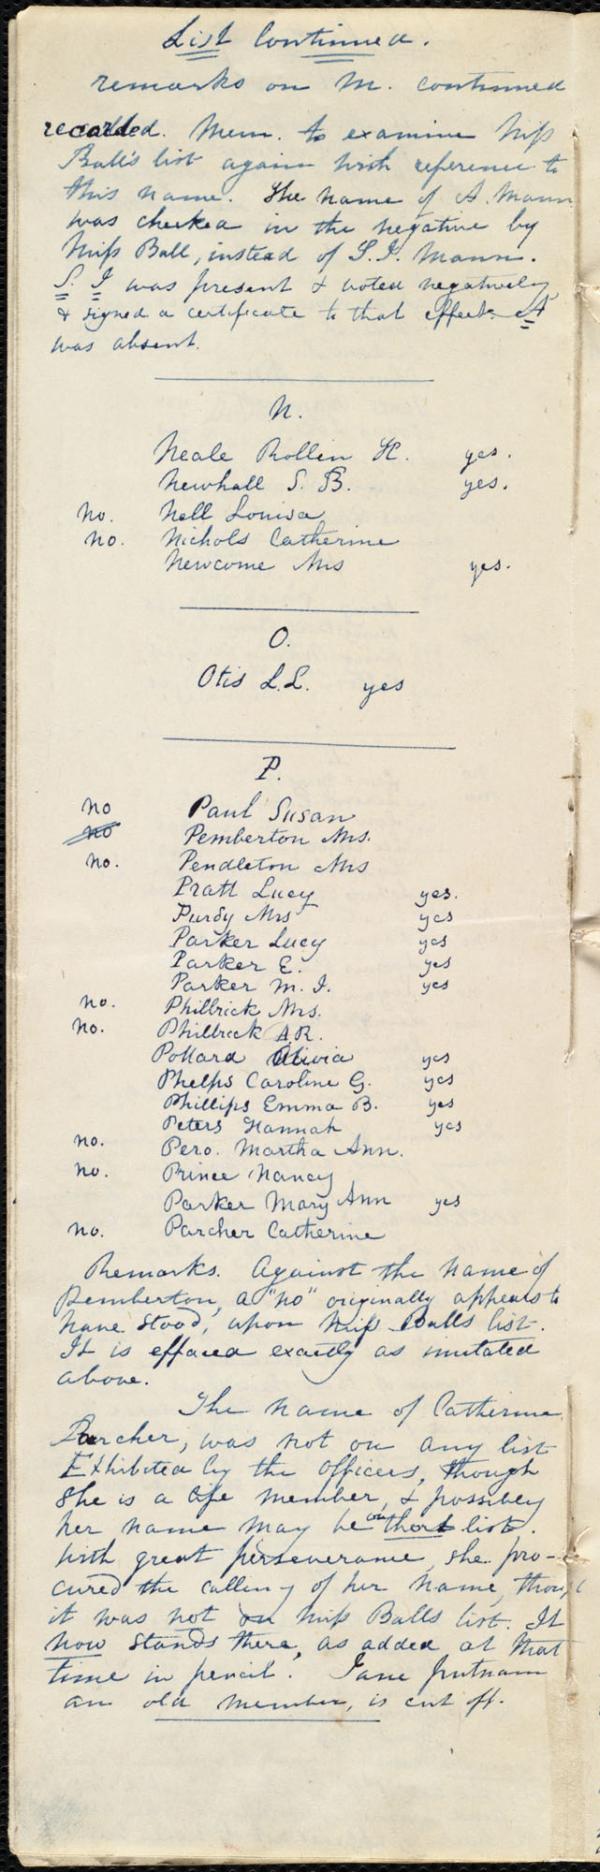 List Continued.
remarks on M. continued
recorded. Mem. to examine Miss
Ball's list again with reference to
this name. The name of A. Mann
was checked in the negative by
Miss Ball, instead of S. I. Mann.
S. I was present & voted negatively
& signed a certificate to that effect. A
was absent.
N.
Neale Rollin H. yes.
Newhall S. B. yes.
no. Nell Louisa
no. Nichols Catherine
Newcome Mrs yes.
O.
Otis L.L. yes
P.
no Paul Susan
no Pemberton Mrs.
no. Pendleton Mrs
Pratt Lucy yes.
Purdy Mrs yes
Parker Lucy yes
Parker E. yes
Parker M. I. yes
no. Philbrick Mrs.
no. Philbrick A R.
Pollard Olivia yes
Phelps Caroline G. yes
Phillips Emma B. yes
Peters Hannah yes
no. Pero. Martha Ann.
no. Prince Nancy
Parker Mary Ann yes
no. Parcher Catherine
Remarks. Against the name of
Pemberton, a "no" originally appears to
have stood, upon Miss Balls list.
It is effaced exactly as imitated
above.
The name of Catherine
Parcher, was not on any list
Exhibited by the officers, though
she is a life member, & possibly
her name may be on that list.
With great perseverance, she pro-
cured the calling of her name, thoug
it was not on Miss Balls list. It
now stands there, as added at that
time in pencil. Jane Putnam
an old member, is cut off.